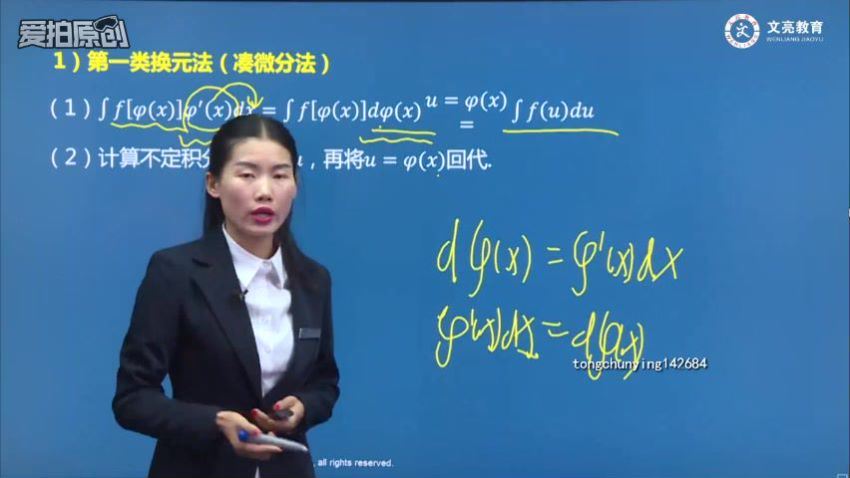 爱拍原创
文亮教育
WENLIANG JIAOYU
1）第一类换元法（凑微分法）
（1）∫f[φ(x)]φ′(x)dx=∫f[φ(x)]dφ(x) u=φ(x) = ∫f(u)du
（2）计算不定积分 u，再将u=φ(x)回代.
dφ(x)=φ'(x)dx
φ'(x)dx=dφ(x)
tongchunying142684
, all rights reserved.